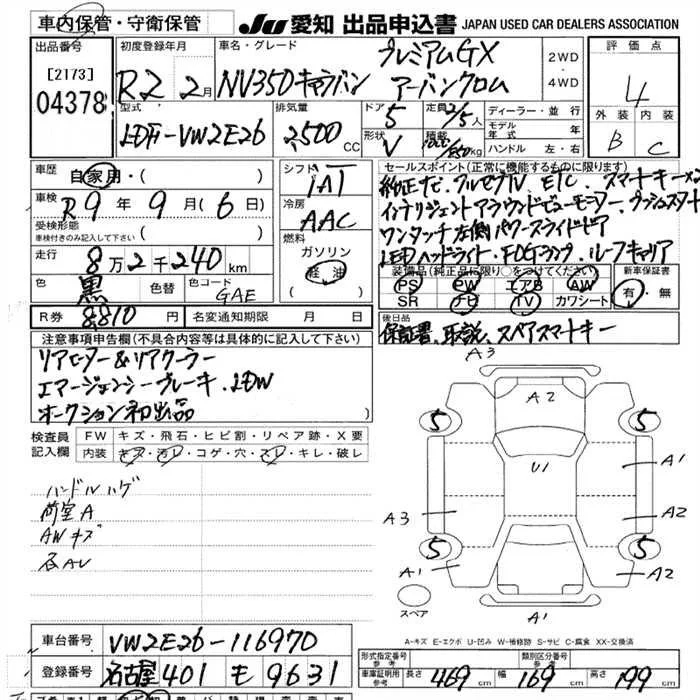 車内保管・守衛保管
JU 愛知 出品申込書 JAPAN USED CAR DEALERS ASSOCIATION
出品番号
[2173]
04378
初度登録年月
R2 2月
車名・グレード
NV350キャラバン
プレミアムGX
アーバンクロム
2WD
・
4WD
評価点
4
外装 内装
B C
型式
LDF-VW2E26
排気量
2,500 CC
ドア
5
定員
2/5人
形状
V
積載
kg
ディーラー・並行
モデル年式 年
ハンドル 左・右
車歴
自家用・( )
車検
R9年9月(6日)
受検形態
車検付きのみ記入して下さい ( )
走行
8万2千240km
色
黒
色替
色コード
GAE
シフト
IAT
冷房
AAC
燃料
ガソリン
軽油
セールスポイント(正常に機能するものに限ります)
純正ナビ、フルセグTV、ETC、スマートキー
インテリジェントアラウンドビューモニター、プッシュスタート
ワンタッチ左側パワースライドドア
LEDヘッドライト・FOGランプ、ルーフキャリア
装備品(純正品に限り)をつけてください
PS PW エアB AW
SR ナビ TV カワシート
新車保証書
有 無
R券 8,810円
名変通知期限 月 日
後日品
保証書、取説、スペアスマートキー
注意事項申告欄(不具合内容等は具体的に記入して下さい)
リアヒーター&リアクーラー
エマージェンシーブレーキ・LDW
オークション初出品
検査員記入欄
FW キズ・飛石・ヒビ割・リペア跡・X要
内装 キズ・汚レ・コゲ・穴・スレ・キレ・破レ
ハンドルハゲ
荷室A
AWキズ
各AU
A3
A2
5
5
U1
A1
A3
A2
5
5
A1
A2
A1
スペア
A-キズ E-エクボ U-凹み W-補修跡 S-サビ C-腐食 XX-交換済
車台番号
VW2E26-116970
登録番号
名古屋 401 モ 9631
形式指定番号
参考
類別区分番号
参考
車庫証明用
参考
長さ 469cm 幅 169cm 高さ 199cm